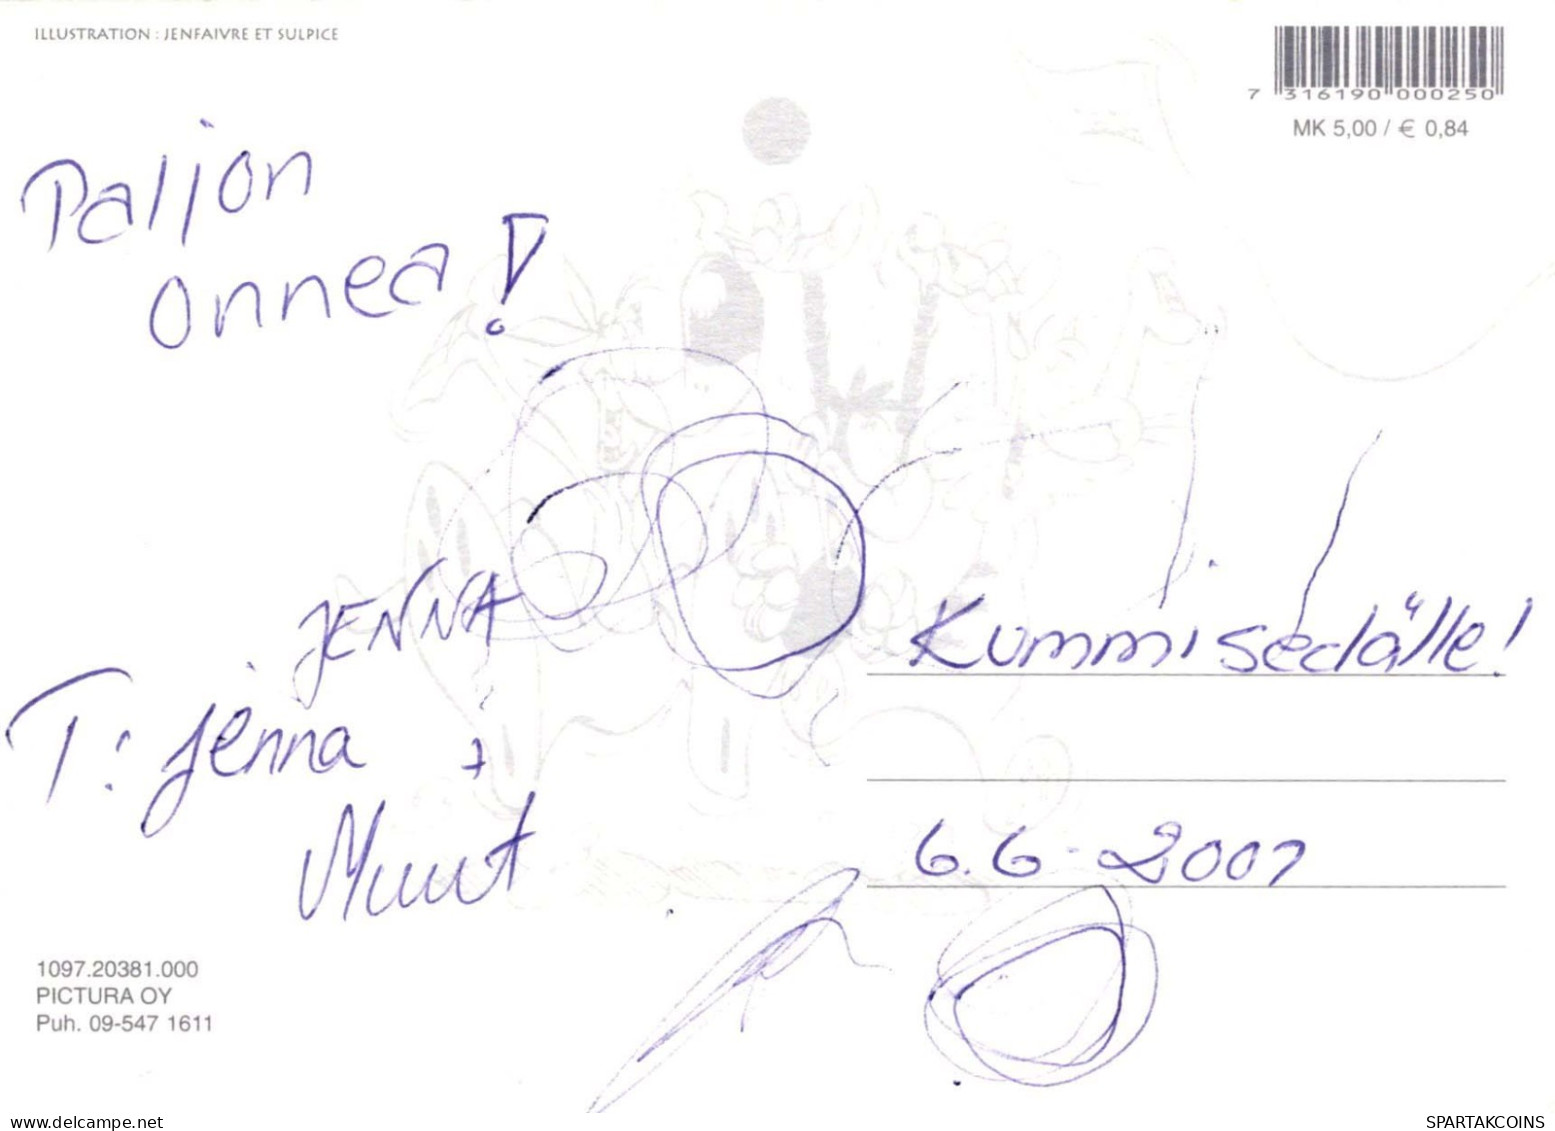 ILLUSTRATION : JENFAIVRE ET SULPICE
7 316190 000250
MK 5,00 / € 0,84
Paljon
onnea!
JENNA
T: Jenna +
Muut
Kummisedälle!
6.6.2001
1097.20381.000
PICTURA OY
Puh. 09-547 1611
delcampe.net
SPARTAKCOINS